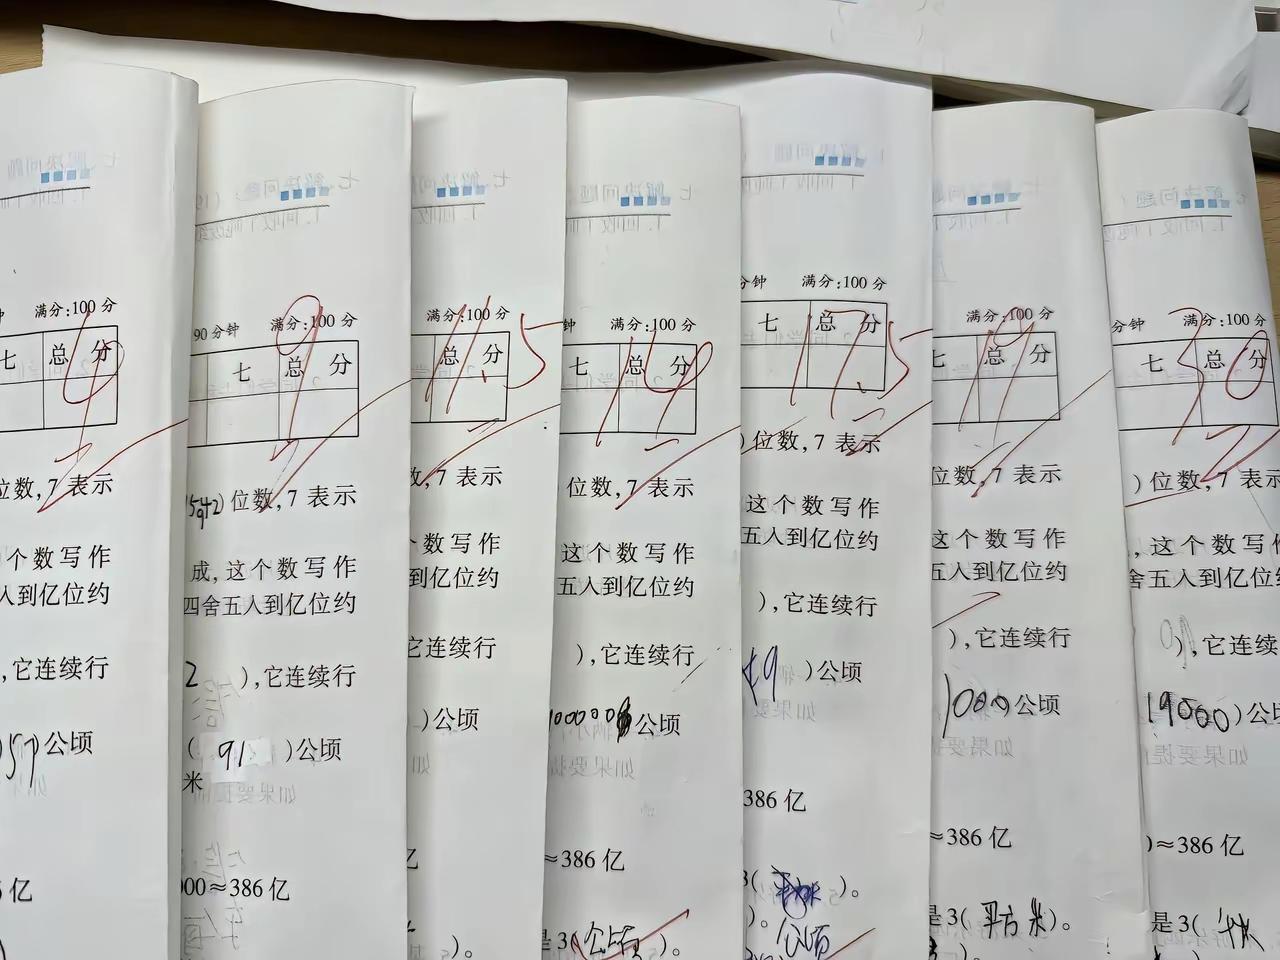 满分:100 分
七 总 分
9
位数,7 表示
个数写作
人到亿位约
,它连续行
57)公顷
亿
90 分钟 满分:100 分
七 总 分
9
位数,7 表示
成,这个数写作
四舍五入到亿位约
2 ),它连续行
( 91 )公顷
米
000≈386 亿
满分:100 分
总 分
11.5
数,7 表示
个数写作
到亿位约
它连续行
)公顷
)。
钟 满分:100 分
七 总 分
19
位数,7 表示
这个数写作
五入到亿位约
),它连续行
公顷
≈386 亿
是 3(公顷 )。
分钟 满分:100 分
七 总 分
17.5
)位数,7 表示
这个数写作
五入到亿位约
),它连续行
)公顷
386 亿
3( )。
)。
公顷
满分:100 分
总 分
19
位数,7 表示
这个数写作
五入到亿位约
),它连续行
1000 公顷
≈386 亿
是 3( 平方米 )。
分钟 满分:100 分
七 总 分
30
)位数,7 表示
,这个数写作
舍五入到亿位约
),它连续行
19000 )公顷
)≈386 亿
是 3(